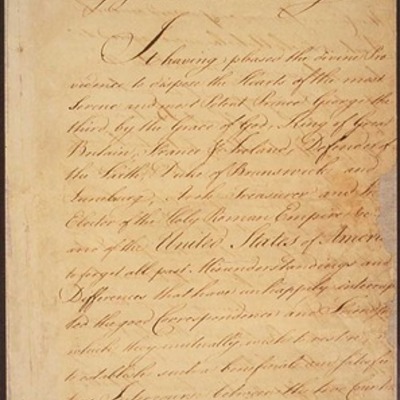 It having pleased the divine Pro
vidence to dispose the Hearts of the most
serene and most Potent Prince George the
third, by the Grace of God, King of Great
Britain, France & Ireland, Defender of
the Faith, Duke of Brunswick and
Lunebourg, Arch Treasurer and
Elector of the Holy Roman Empire &c
and of the United States of Americ
to forget all past Misunderstandings and
Differences that have unhappily interrup
ted the good Correspondence and Friendsh
which they mutually wish to restore,
to establish such a beneficial and satisfac
Intercourse between the two Count